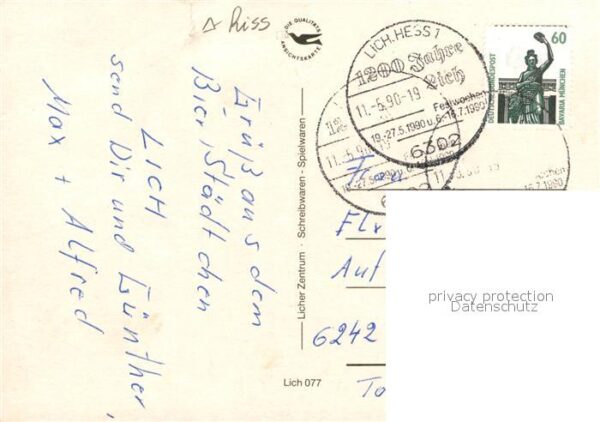 Riss
DIE QUALITÄTS
ANSICHTSKARTE
Grüß aus dem
Bier Städtchen
LICH
send Dir und Günther,
Max + Alfred
Licher Zentrum · Schreibwaren - Spielwaren
Lich 077
LICH, HESS 1
1200 Jahre
Lich
11.-5.90-19
Festwochen
19.-27.5.1990 u. 6.-16.7.1990
6302
60
DEUTSCHE BUNDESPOST
BAVARIA MÜNCHEN
Frau
Auf
6242
To
privacy protection
Datenschutz